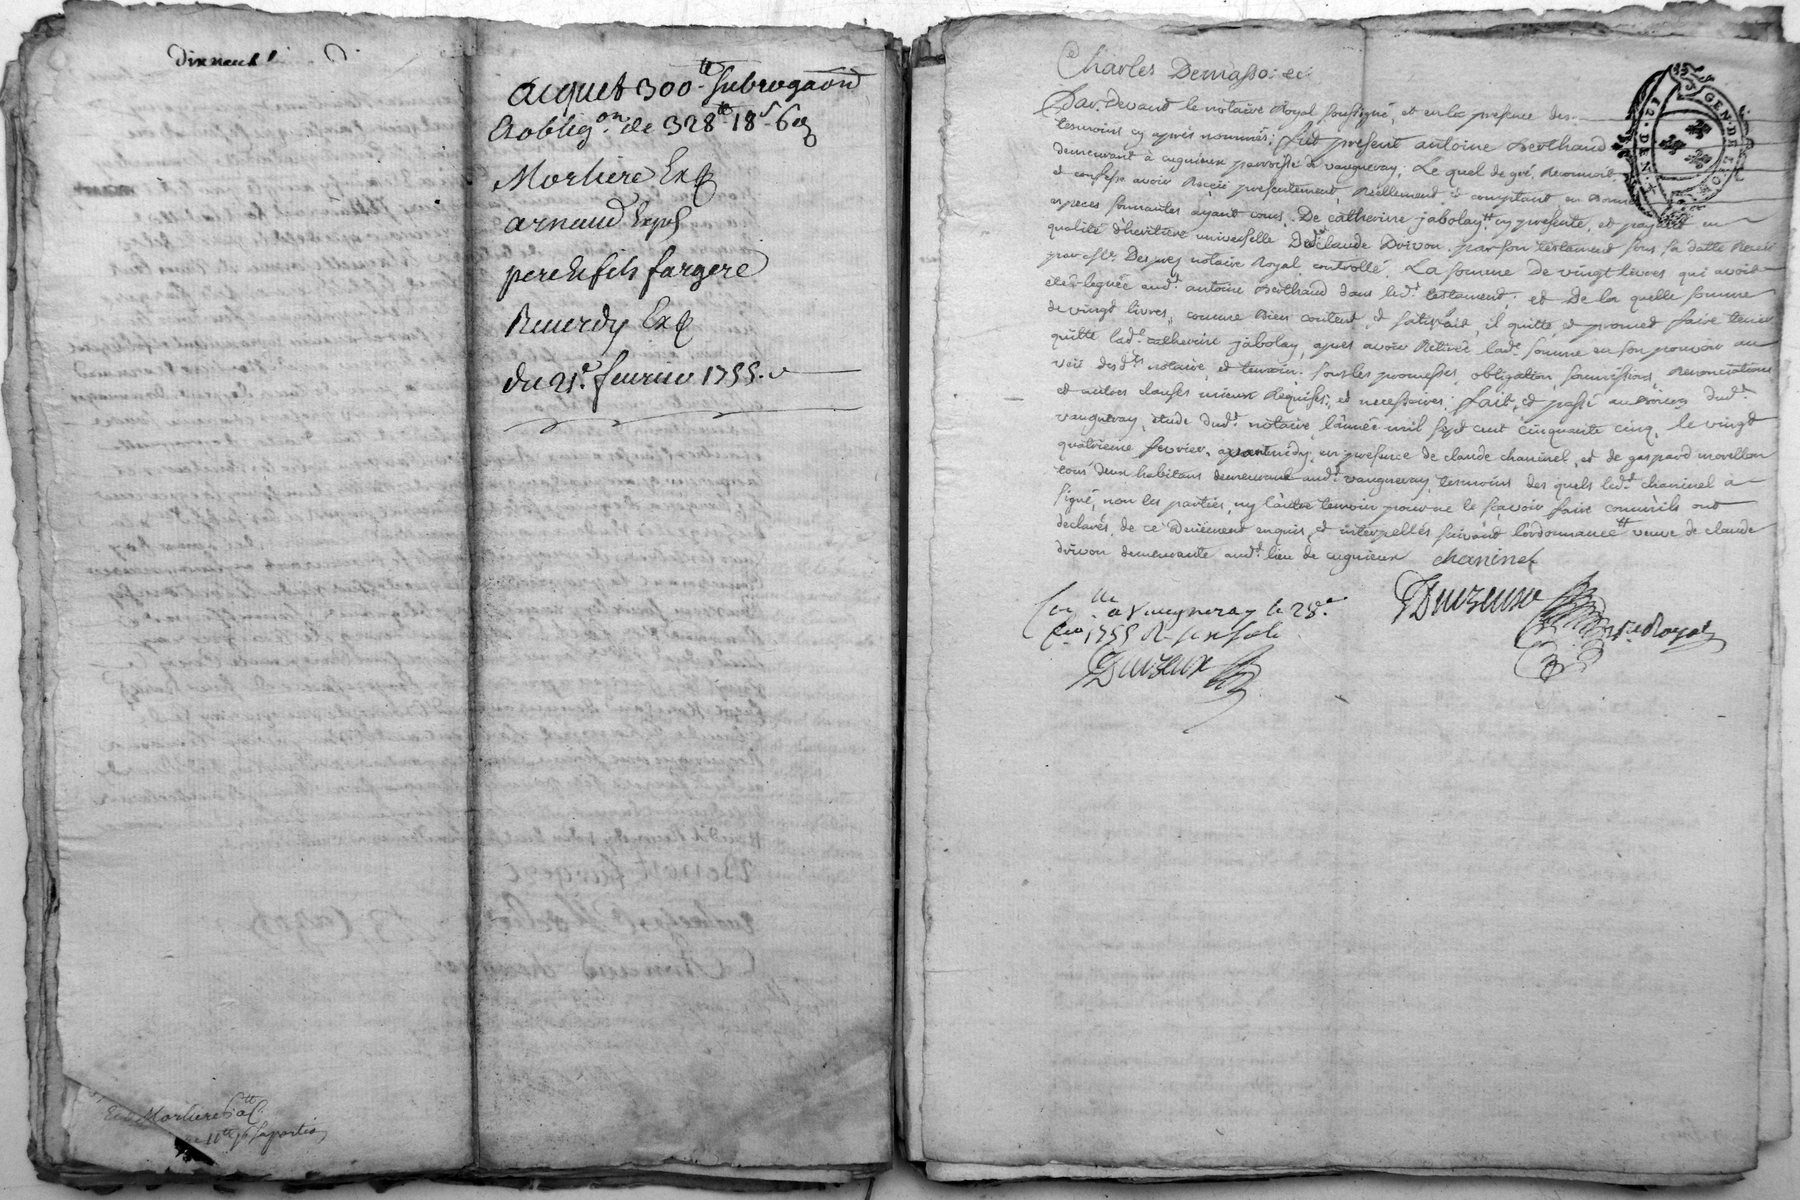 acquet 300tt subrogaõn
& oblig.on de 328tt 18s 6d
Morliere Exp
arnaud Exp
pere & fils fargere
Reverdy Exp
du 21e. fevrier 1755.
Charles Demasso. ec.
Par. devant le notaire Royal soussigné, et en la presence des
tesmoins cy apres nommés; fut present antoine Berthaud
demeurant à cugnieux parroisse de vaugneray; Le quel de gré, Reconnoit
et confesse avoir Reçeu presentement, Réellement et comptant en bonnes
especes sonnantes ayant cours, De catherine jabolay tt cy presente, et payant en
qualité d'heritiere universelle Dud.t claude Drivon par son testament sous sa datte Receu
par Mr. notaire Royal controllé, La somme de vingt livres qui avoit
eté leguée aud.t antoine Berthaud dans led.t testament; et De la quelle somme
de vingt livres, comme bien content, et satisfait, il quitte et promet faire tenir
quitte lad.e catherine jabolay, apres avoir Retirée lad.e somme en son pouvoir au
veü desd.ts notaire, et temoin; sous les promesses, obligation, soumissions, Renonciations
et autres clauses mieux Requises, et necessaires; fait, et passé au Bourg dud.t
vaugneray, étude dud.t notaire, l'année mil sept cent cinquante cinq, le vingt
quatrieme fevrier, avant midy, en presence de claude chaninel, et de gaspard morellon
tous deux habitans demeurant aud.t vaugneray, tesmoins des quels led.t chaninel a
signé, non les parties, ny l'autre temoin pour ne le sçavoir faire comm'ils ont
declarés, de ce Duëment enquis, et interpellés suivant l'ordonnance tt veuve de claude
drivon demeurante aud.t lieu de cugnieux chaninel
GEN. DE LYON
12. DEN.rs
a Vaugneray le 28e
1755 R.
n.re Royal